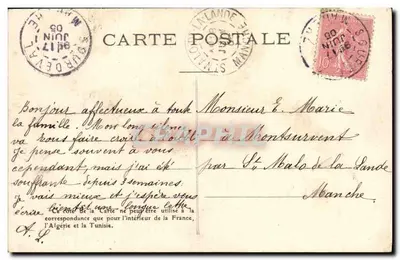 CARTE POSTALE
SOURDEVAL
MANCHE
17
JUIN
05
ST MALO DE LA LANDE
MANCHE
Bonjour affectueux à toute
la famille. Mon long silence
va vous faire croire à l'oubli
je pense souvent à vous
cependant, mais j'ai été
souffrante depuis 3 semaines.
Je vais mieux et j'espère vous
écrire bientôt une longue lettre
A. L.
Monsieur E. Marie
à Montsurvent
par St Malo de la Lande
Manche
Ce côté de la Carte ne peut être utilisé à la
correspondance que pour l'intérieur de la France,
l'Algérie et la Tunisie.